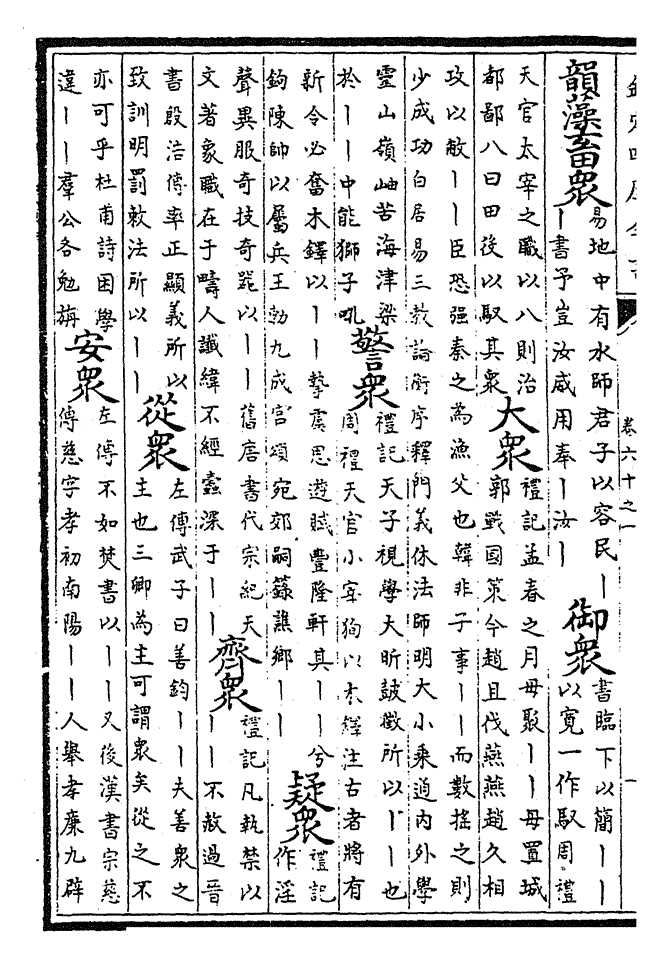 欽定四庫全書
卷六十之一
韻藻畜衆
易地中有水師君子以容民丨
丨書予豈汝咸用奉丨汝丨
御衆
書臨下以簡丨丨
以寬一作馭周禮
天官太宰之職以八則治
都鄙八曰田役以馭其衆
大衆
禮記孟春之月毋聚丨丨毋置城
郭戰國策今趙且伐燕燕趙久相
攻以敝丨丨臣恐强秦之為漁父也韓非子事丨丨而數搖之則
少成功白居易三教論衡序釋門義休法師明大小乘通内外學
靈山嶺岫苦海津梁
於丨丨中能獅子吼
警衆
禮記天子視學大昕鼓徵所以丨丨也
周禮天官小宰徇以木鐸注古者將有
新令必奮木鐸以丨丨摯虞思遊賦豐隆軒其丨丨兮
鉤陳帥以屬兵王勃九成宫頌宛郊嗣籙譙鄉丨丨
疑衆
禮記
作淫
聲異服奇技奇器以丨丨舊唐書代宗紀天
文著象職在于疇人讖緯不經蠹深于丨丨
齊衆
禮記凡執禁以
丨丨不赦過晉
書殷浩傳率正顯義所以
致訓明罰敕法所以丨丨
從衆
左傳武子曰善鈞丨丨夫善衆之
主也三卿為主可謂衆矣從之不
亦可乎杜甫詩困學
違丨丨羣公各勉旃
安衆
左傳不如焚書以丨丨又後漢書宗慈
傳慈字孝初南陽丨丨人舉孝廉九辟